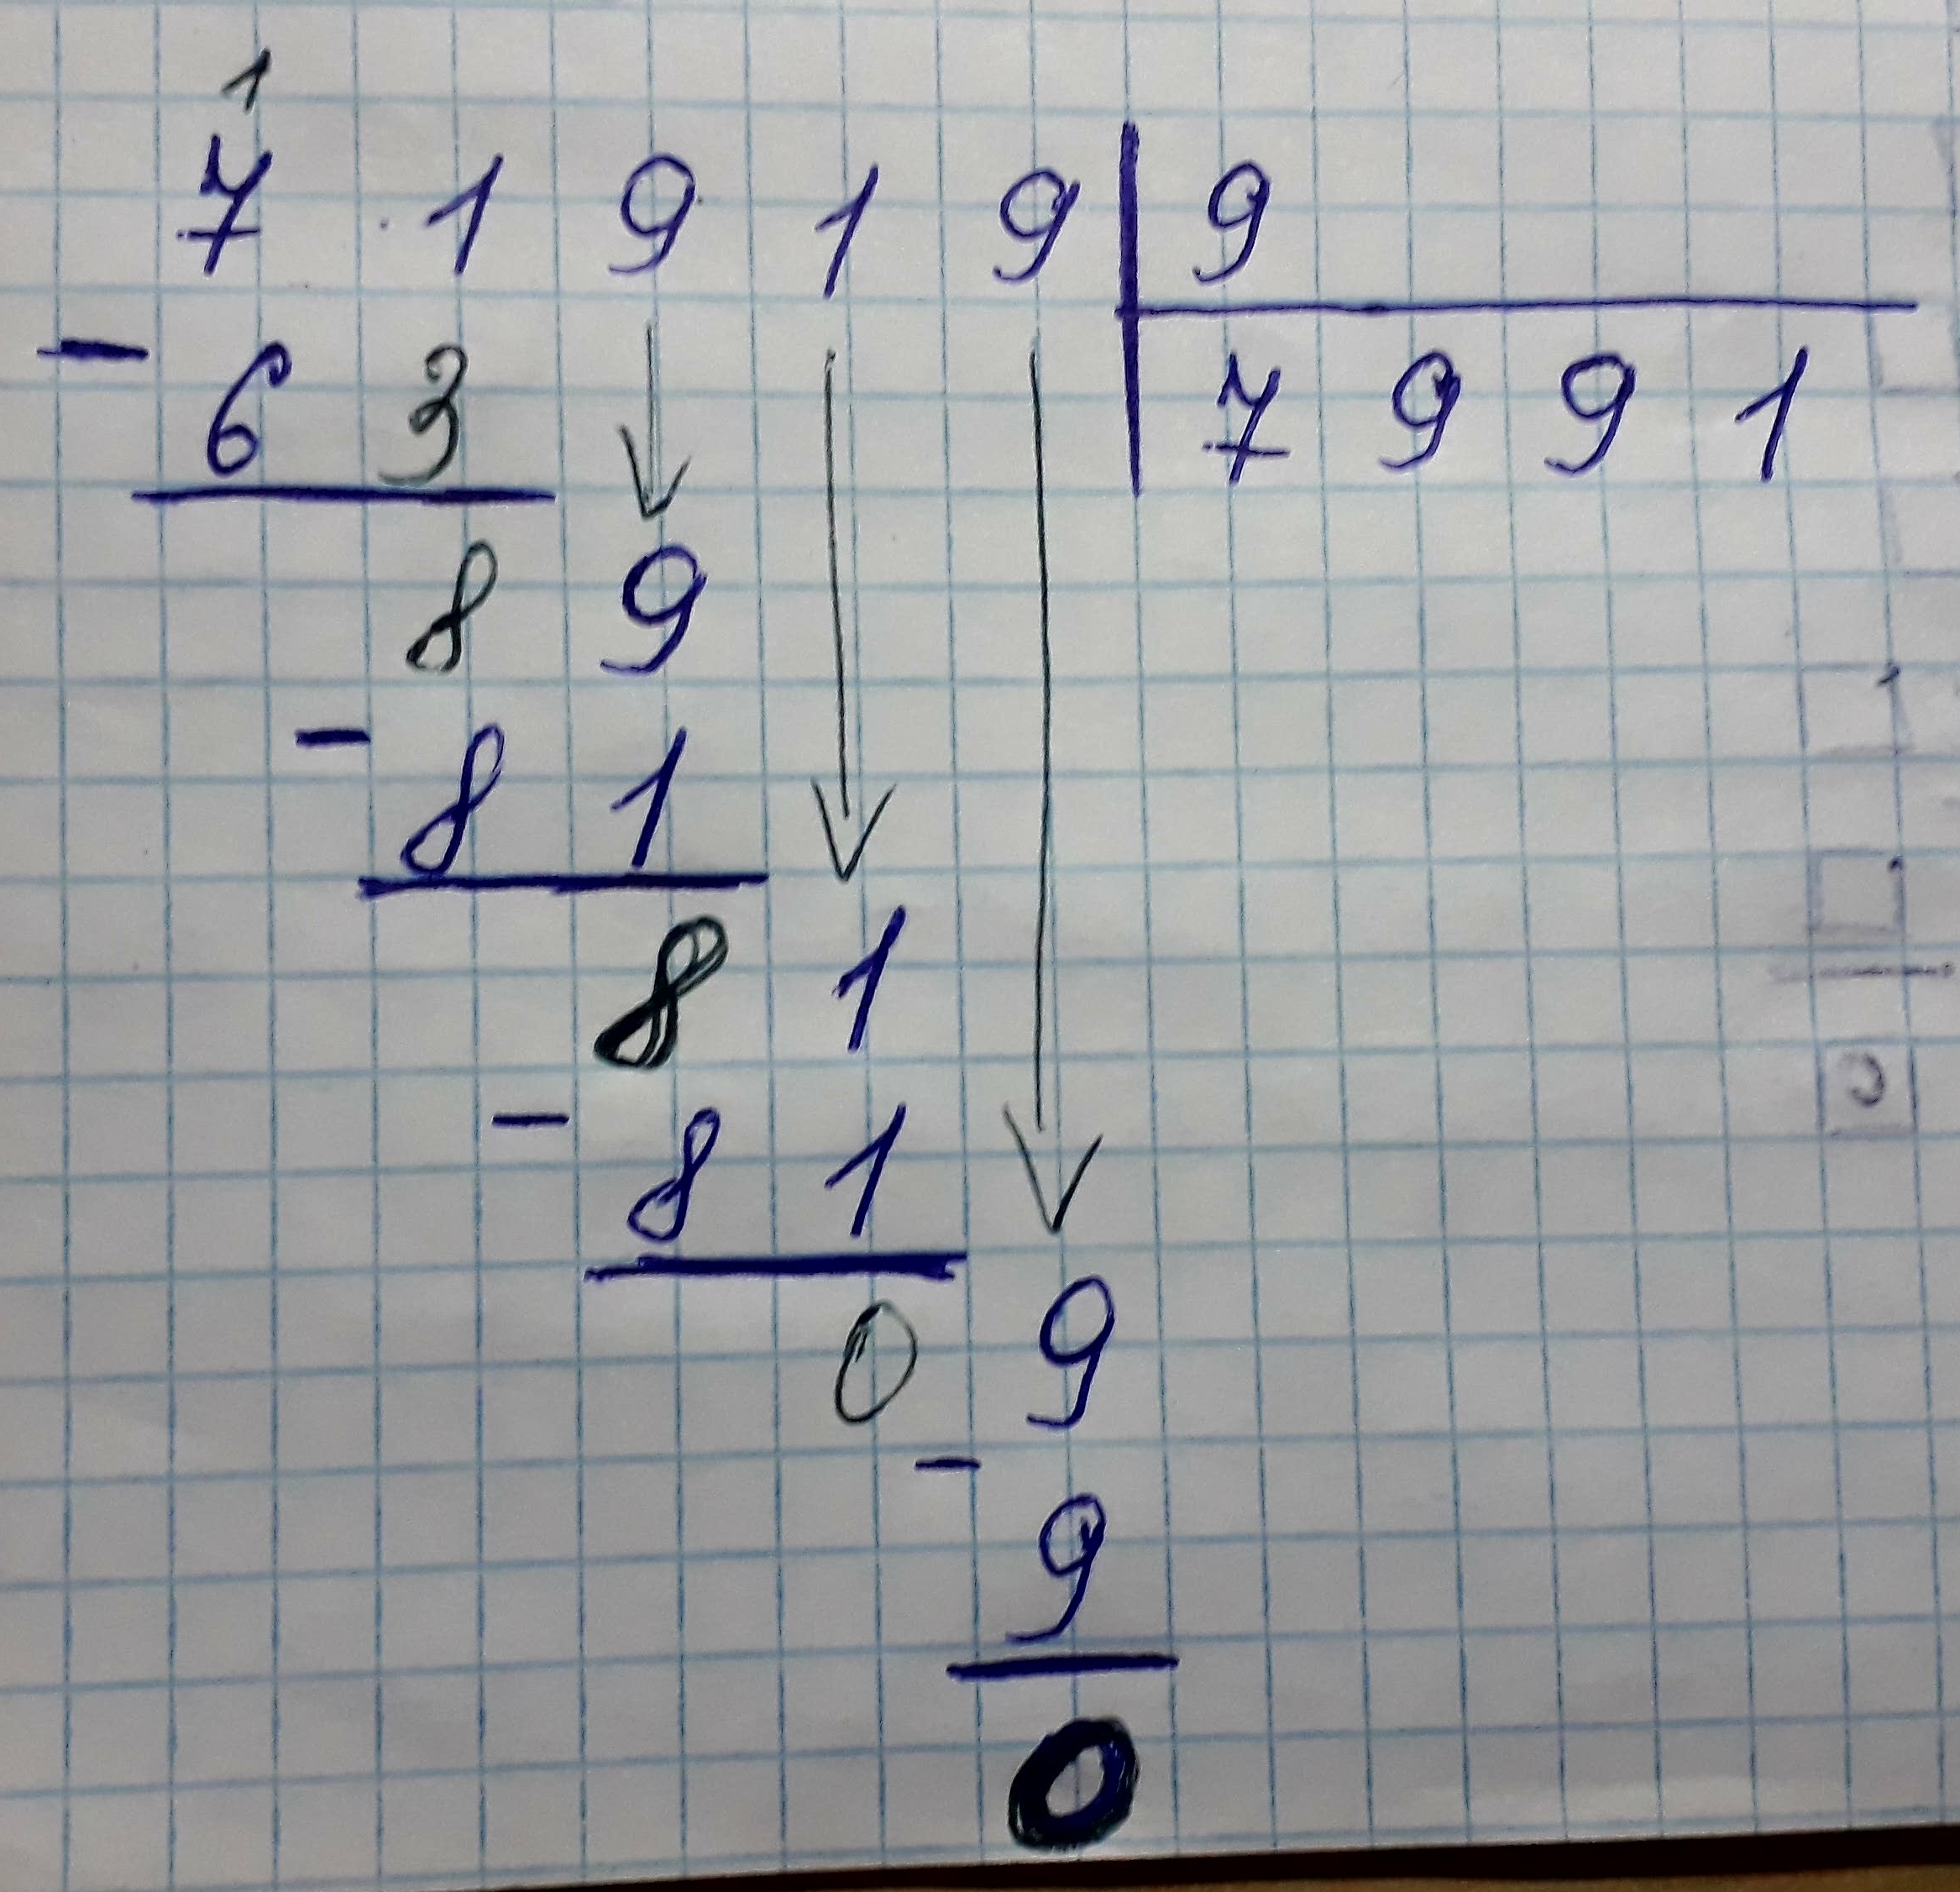 1
7 1 9 1 9 | 9
- 6 3 7 9 9 1
8 9
- 8 1
8 1
- 8 1
0 9
- 9
0